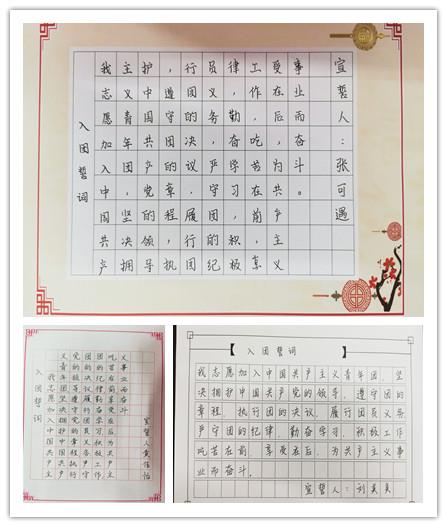 入团誓词
我志愿加入中国共产
主义青年团，坚决拥
护中国共产党的领导
，遵守团的章程，执
行团的决议，履行团
员义务，严守团的纪
律，勤奋学习，积极
工作，吃苦在前，享
受在后，为共产主义
事业而奋斗。
宣誓人：张可遇
入团誓词
我志愿加入中国共产主
义青年团坚决拥护中国共产
党的领导遵守团的章程执行
团的决议履行团员义务严守
团的纪律勤奋学习积极工作
吃苦在前享受在后为共产主
义事业而奋斗
宣誓人黄佳怡
【 入团誓词 】
我志愿加入中国共产主义青年团，坚
决拥护中国共产党的领导，遵守团的
章程，执行团的决议，履行团员义务
严守团的纪律，勤奋学习，积极工作
吃苦在前，享受在后，为共产主义事
业而奋斗。
宣誓人：刘美美